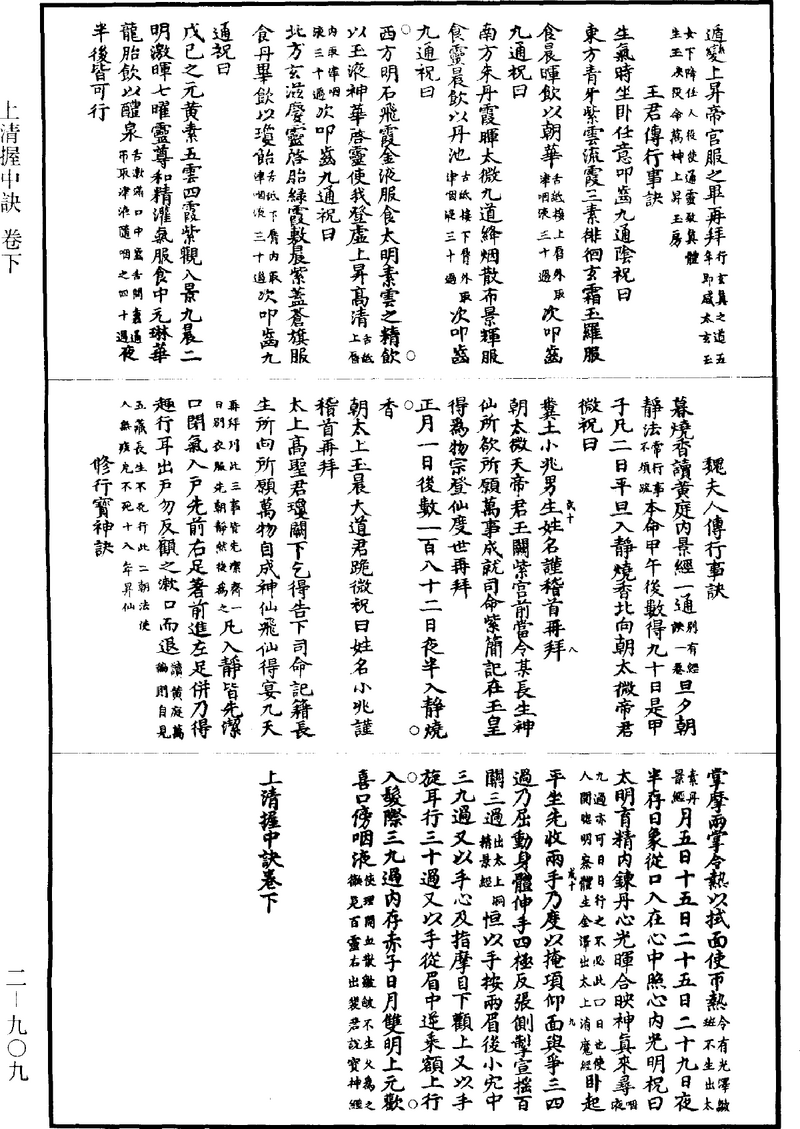 遁變上昇帝官服之畢再拜行玄真之道五年卽咸太玄玉
女下降任人役使通靈致真體
生玉映役命萬神上昇玉房
王君傳行事訣
生氣時坐卧任意叩齒九通陰祝曰
東方青牙紫雲流霞三素徘徊玄霜玉羅服
食晨暉飲以朝華舌舐接上脣外取津咽液三十過次叩齒
九通祝曰
南方朱丹霞暉太微九道絳烟散布景輝服
食靈晨飲以丹池舌舐接下脣外取津咽液三十過次叩齒
九通祝曰
西方明石飛霞金液服食太明素雲之精飲
以玉液神華啓靈使我登虛上昇髙清舌舐上脣
內取津咽液三十過次叩齒九通祝曰
北方玄滋慶靈啓胎緑霞敷晨紫蓋蒼旗服
食丹畢飲以瓊飴舌舐下脣內取津咽液三十過次叩齒九
通祝曰
戊已之元黄素五雲四霞紫觀入景九晨二
明激暉七曜靈尊和精灌氣服食中元琳華
龍胎飲以醴泉舌漱滿口中當舌間當過帀取津液隨咽之四十過夜
半後皆可行
魏夫人傳行事訣
暮燒香讀黄庭內景經一通別有經訣一卷旦夕朝
靜法常行事不煩疏本命甲午後數得九十日是甲
子凡二日平旦入靜燒香北向朝太微帝君
微祝曰
糞土小兆男生姓名謹稽首再拜
朝太微天帝君玉闕紫宫前當令某長生神
仙所欲所願萬事成就司命紫簡記在玉皇
得爲物宗登仙度世再拜
正月一日後數一百八十二日夜半入靜燒
香
朝太上玉晨大道君跪微祝曰姓名小兆謹
稽首再拜
太上髙聖君瓊闕下乞得告下司命記籍長
生所向所願萬物自成神仙飛仙得宴九天
再拜列此三事皆先潔齋一日別衣服先朝靜然後爲之凡入靜皆先潔
口閉氣入戶先前右足著前進左足併乃得
趣行耳出戶勿反顧之漱口而退讀黄庭萬徧則自見
五藏長生不死行此二朝法使
人無疾九不死十八年昇仙
修行寳神訣
掌摩兩掌令熱以拭面使帀熱令有光澤皺斑不生出太
素丹景經月五日十五日二十五日二十九日夜
半存日象從口入在心中照心內光明祝曰
太明育精內鍊丹心光暉合映神真來尋咽夜
九過亦可日日行之不必此日也使
人開聰明察體生金澤出太上消魔經卧起
平坐先收兩手乃度以掩項仰面與爭三四
過乃屈動身體伸手四極反張側掣宣摇百
關三過出太上精景經恒以手按兩眉後小穴中
三九過又以手心及指摩目下顴上又以手
旋耳行三十過又以手從眉中逆乘額上行
入髮際三九過內存赤子日月雙明上元歡
喜口傍咽液使理開血散皺皷不生火爲之徹見百靈右出裴君說寳神經
上清握中訣卷下
上清握中訣 卷下
二—九〇九